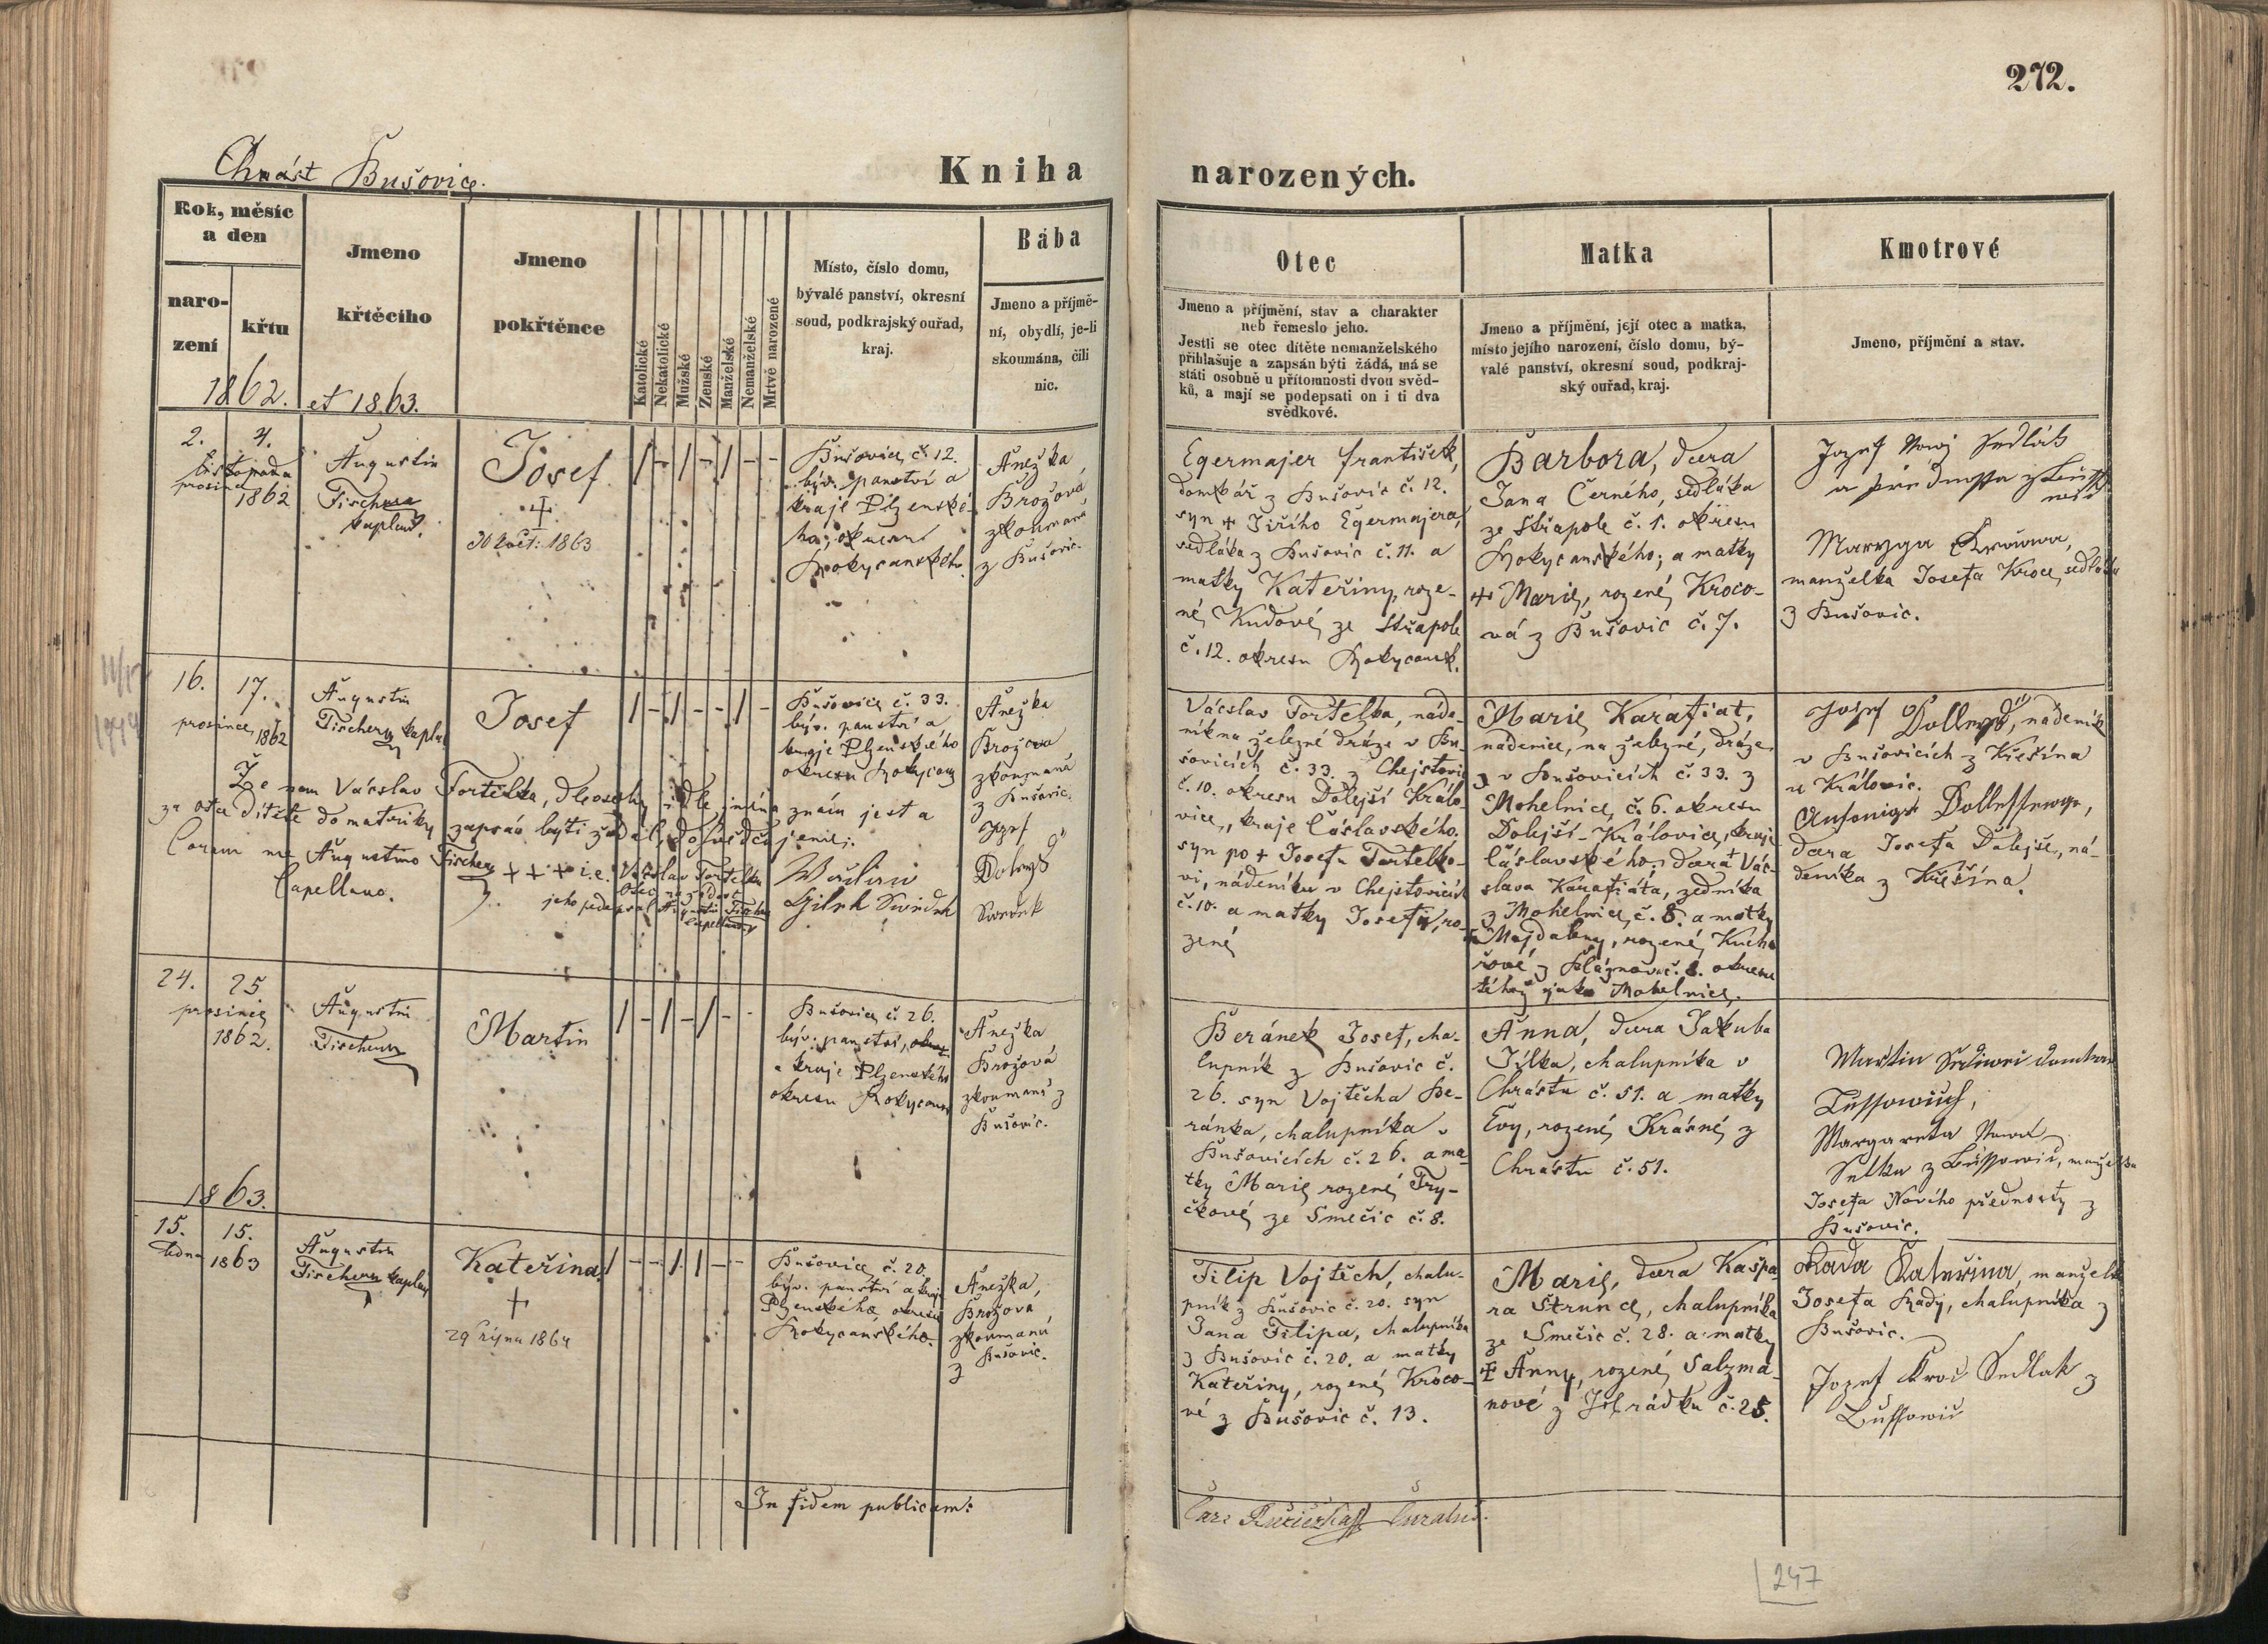 272.
Chrást Bušovice.
Kniha narozených.
Rok, měsíc
a den
naro-
zení
křtu
Jmeno
křtěcího
Jmeno
pokřtěnce
Katolické
Nekatolické
Mužské
Ženské
Manželské
Nemanželské
Mrtvě narozené
Místo, číslo domu,
bývalé panství, okresní
soud, podkrajský ouřad,
kraj.
Bába
Jmeno a příjmě-
ní, obydlí, je-li
skoumána, čili
nic.
Otec
Jmeno a příjmění, stav a charakter
neb řemeslo jeho.
Jestli se otec dítěte nemanželského
přihlašuje a zapsán býti žádá, má se
státi osobně u přítomnosti dvou svěd-
ků, a mají se podepsati on i ti dva
svědkové.
Matka
Jmeno a příjmění, její otec a matka,
místo jejího narození, číslo domu, bý-
valé panství, okresní soud, podkraj-
ský ouřad, kraj.
Kmotrové
Jmeno, příjmění a stav.
1862. et 1863.
2. 4.
listopada
prosince
1862
Augustin
Fischer
kaplan.
Josef
+
1863
Bušovice, č. 12.
býv. panství a
kraje Plzenské-
ho, okresu
Rokycanského.
Anežka
Brožová
zkoumaná
z Bušovic.
Egermajer František,
domkář z Bušovic č. 12.
syn + Jiřího Egermajera,
sedláka z Bušovic č. 11. a
matky Kateřiny, roze-
né Kudové ze Střapole
č. 12. okresu Rokycansk.
Barbora, dcera
Jana Černého, sedláka
ze Střapole č. 1. okresu
Rokycanského; a matky
+ Marie, rozené Kroco-
vá z Bušovic č. 7.
Jozef Nowy Sedlák
a
Maryga
manželka Josefa Kroce, sedláka
z Bušovic.
16. 17.
prosince, 1862
Augustin
Fischer kaplan
Josef
Bušovice č. 33.
býv. panství a
kraje Plzenského
okresu Rokycan
Anežka
Brožova
zkoumaná
z Bušovic.
Že nám Václav Fortelka, dle osoby i dle jména znám jest a
za otce dítěte do matriky zapsán býti žádal, dosvědčujeme:
Coram me Augustino Fischer
Capellano.
+ + + i.e. Václav Fortelka
otec na žádost
jeho podepsal Augustin Fischer
Capellan
Jozef
Swědek
Vácslav Fortelka, náde-
ník na železné dráze v Bu-
šovicích č. 33. z Chejstovic
č. 10. okresu Dolejší Králo-
vice, kraje Čáslavského.
syn po + Josefu Fortelko-
vi, nádeníku v Chejstovicích
č. 10. a matky Josefy, ro-
zené
Marie Karafiat,
nádenice, na železné, dráze
v Bušovicích č. 33. z
Mohelnice, č. 6. okresu
Dolejší-Královice, kraje
Čáslavského, dcera + Vác-
slava Karafiáta, zedníka
z Mohelnice, č. 8. a matky
Majdaleny, rozené Kucha
řové z okresu
téhož jako Mohelnice.
Josef nádeník
v Bušovicích z Křešína
u Královic.
dcera Josefa Dolejše, ná-
deníka z Křešína.
24. 25
prosince
1862.
Augustin
Fischer
Martin
Bušovice č. 26.
býv. panství,
a kraje Plzenského
okresu Rokycan
Anežka
Brožová
zkoumaná z
Bušovic.
Beránek Josef, cha-
lupník z Bušovic č.
26. syn Vojtěcha Be-
ránka, chalupníka v
Bušovicích č. 26. a ma-
tky Marie rozené Try-
čkové ze Smečic č. 8.
Anna, dcera Jakuba
Jílka, chalupníka v
Chrástu č. 51. a matky
Evy, rozené Krásné z
Chrástu č. 51.
Martin
Margareta
manželka
Josefa Nového přednosty z
Bušovic.
1863.
15. 15.
ledna 1863
Augustin
Fischer kaplan
Kateřina
+
29 října 1864
Bušovice č. 20.
býv. panství a kraje
Plzenského okresu
Rokycanského.
Anežka,
Brožova
zkoumaná
z Bušovic.
Filip Vojtěch, chalu-
pník z Bušovic č. 20. syn
Jana Filipa, chalupníka
z Bušovic č. 20. a matky
Kateřiny, rozené Kroco-
vé z Bušovic č. 13.
Marie, dcera Kašpa
ra Strunce, chalupníka
ze Smečic č. 28. a matky
+ Anny, rozené Salzma-
nové z Hrádku č. 25.
Rada Kateřina, manželka
Josefa Rady, chalupníka z
Bušovic.
Jozef Kroc Sedlak z
Bussowic
In fidem publicam:
Curatus.
247